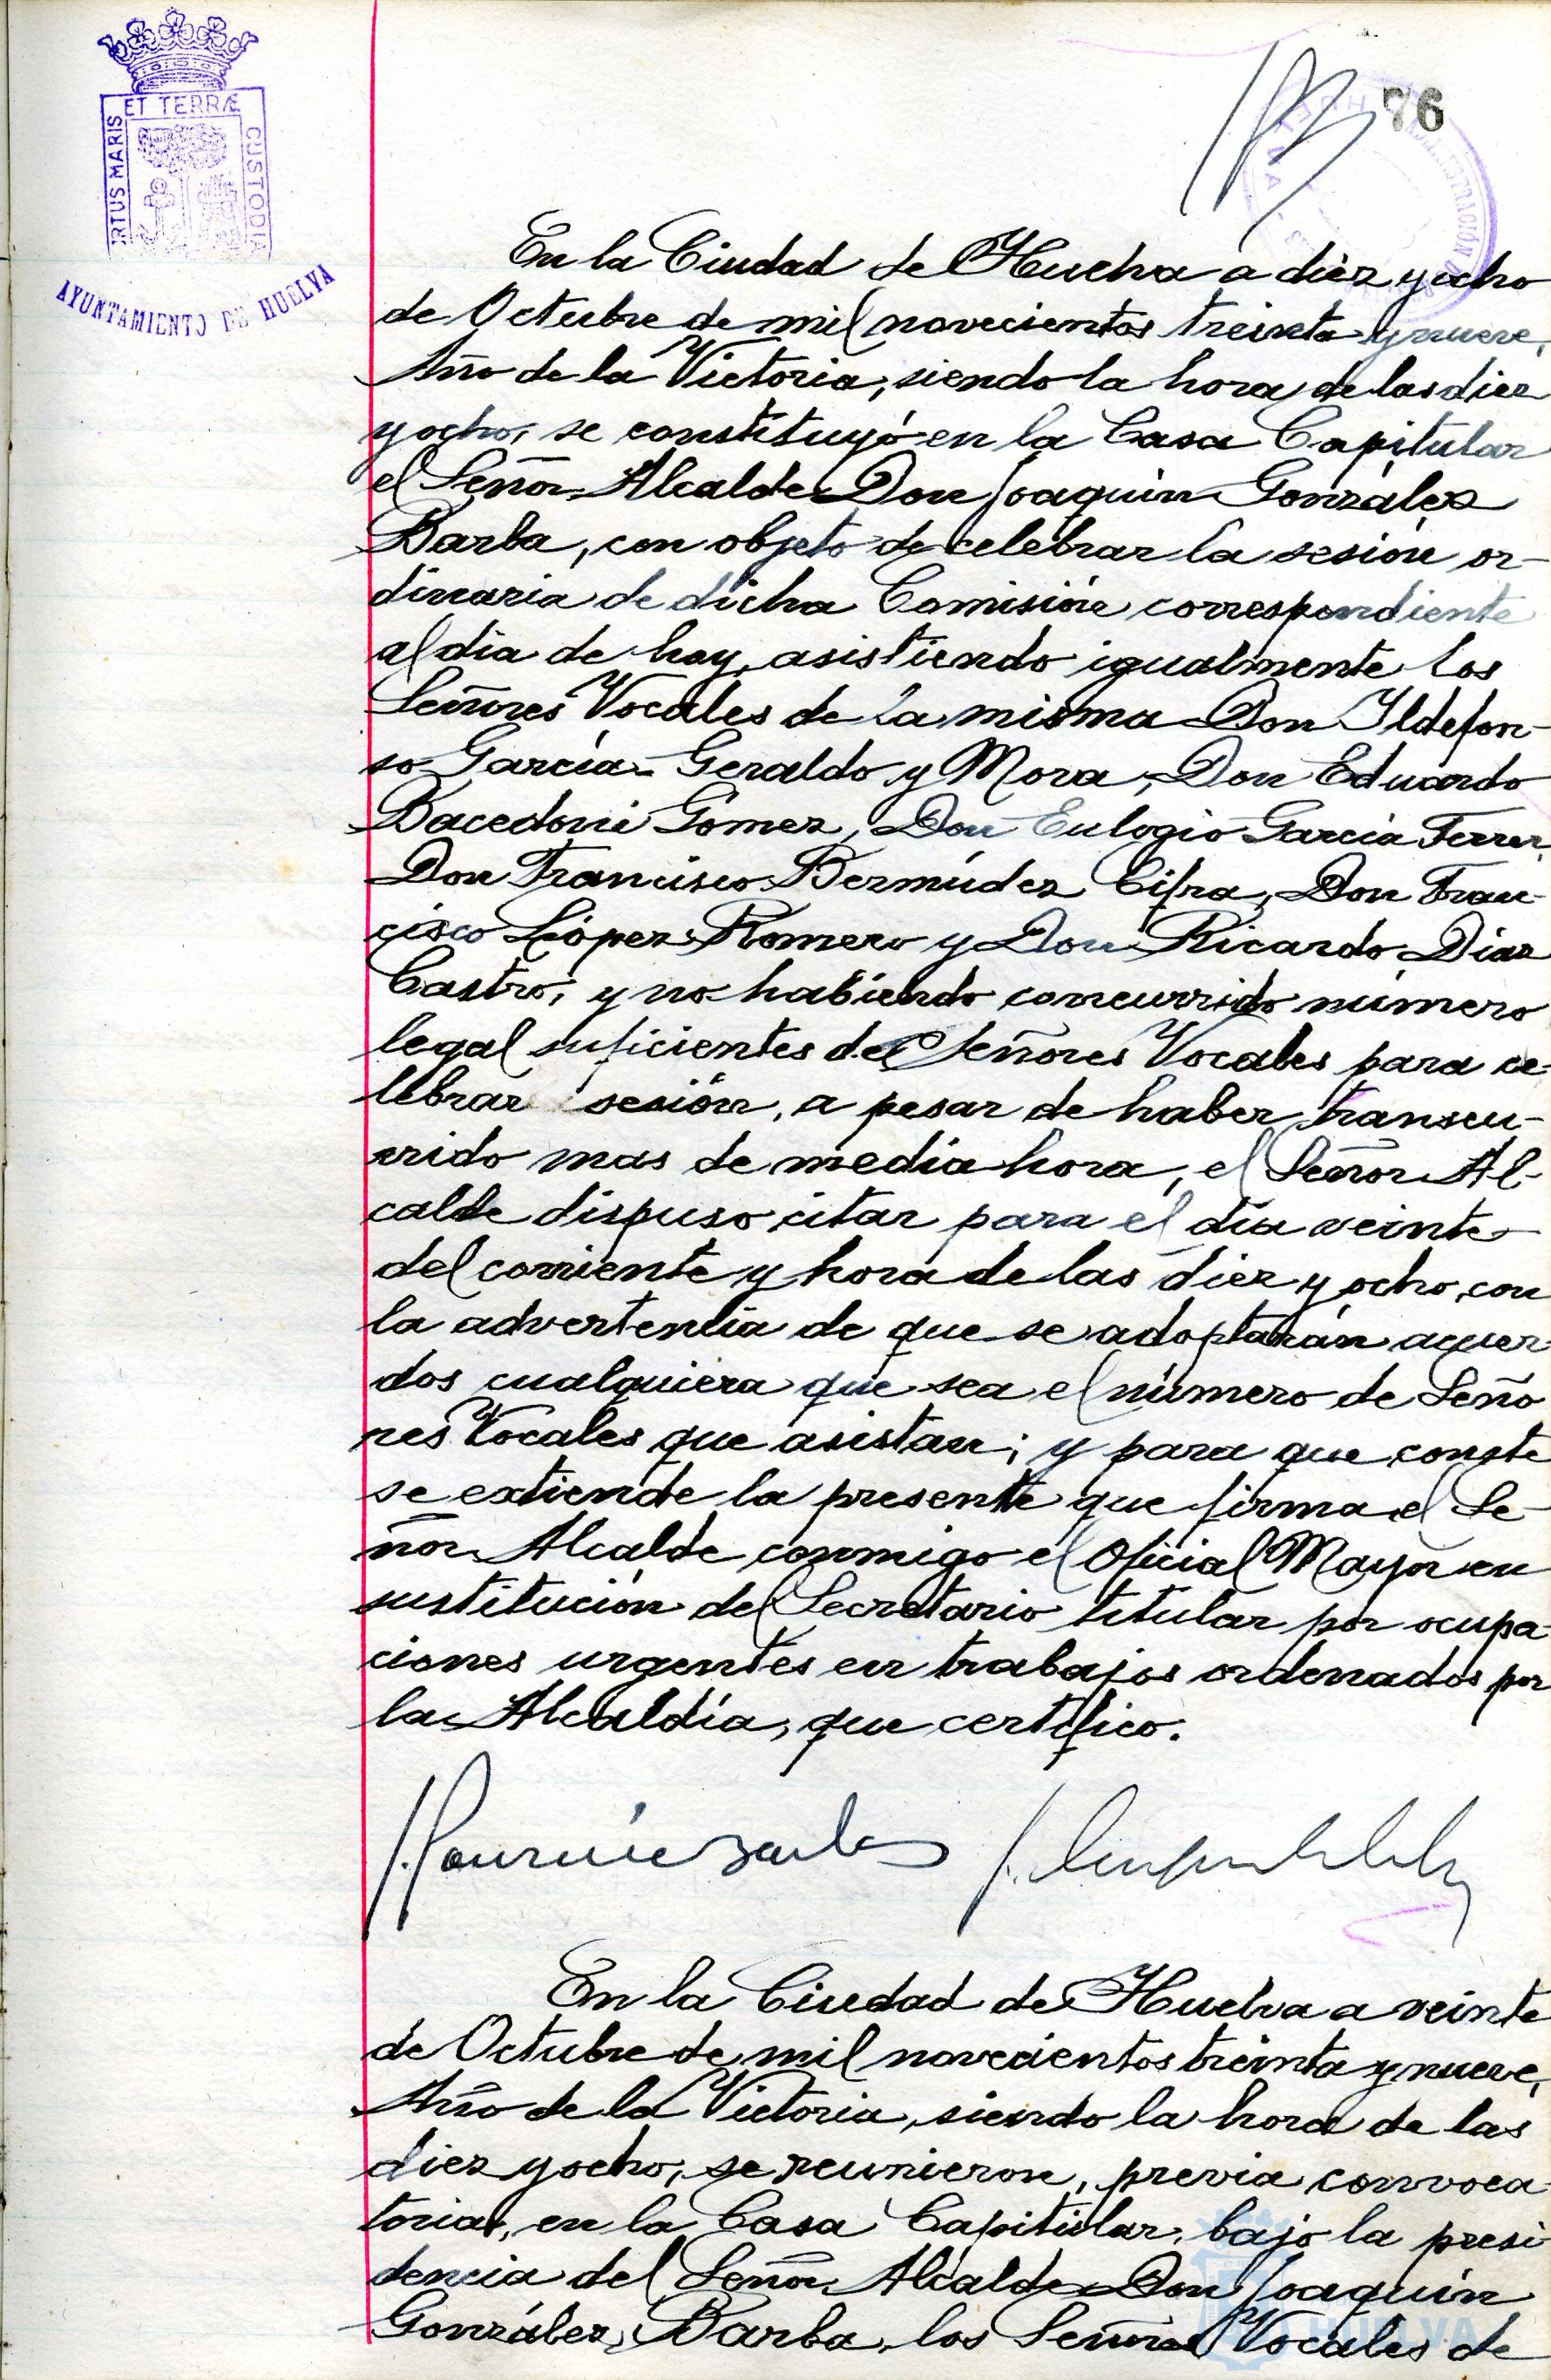 76
ET TERRÆ
RTUS MARIS
CUSTODIA
AYUNTAMIENTO DE HUELVA
En la Ciudad de Huelva a diez y ocho
de Octubre de mil novecientos treinta y nueve,
Año de la Victoria, siendo la hora de las diez
y ocho, se constituyó en la Casa Capitular
el Señor Alcalde Don Joaquin González
Barba, con objeto de celebrar la sesión or-
dinaria de dicha Comisión correspondiente
al dia de hoy, asistiendo igualmente los
Señores Vocales de la misma Don Ildefon-
so García-Geraldo y Mora, Don Eduardo
Bacedoni Gómez, Don Eulogio García Ferrer,
Don Francisco Bermúdez Cifra, Don Fran-
cisco López Romero y Don Ricardo Díaz
Castro, y no habiendo concurrido número
legal suficientes de Señores Vocales para ce-
lebrar sesión, a pesar de haber transcu-
rrido mas de media hora, el Señor Al-
calde dispuso citar para el día veinte
del corriente y hora de las diez y ocho, con
la advertencia de que se adoptarán acuer-
dos cualquiera que sea el número de Seño
res Vocales que asistan; y para que conste
se extiende la presente que firma el Se-
ñor Alcalde conmigo el Oficial Mayor en
sustitución del Secretario titular por ocupa-
ciones urgentes en trabajos ordenados por
la Alcaldía, que certifico.
En la Ciudad de Huelva a veinte
de Octubre de mil novecientos treinta y nueve,
Año de la Victoria, siendo la hora de las
diez y ocho, se reunieron, previa convoca-
toria, en la Casa Capitular, bajo la presi
dencia del Señor Alcalde Don Joaquín
González Barba, los Señores Vocales de
HUELVA